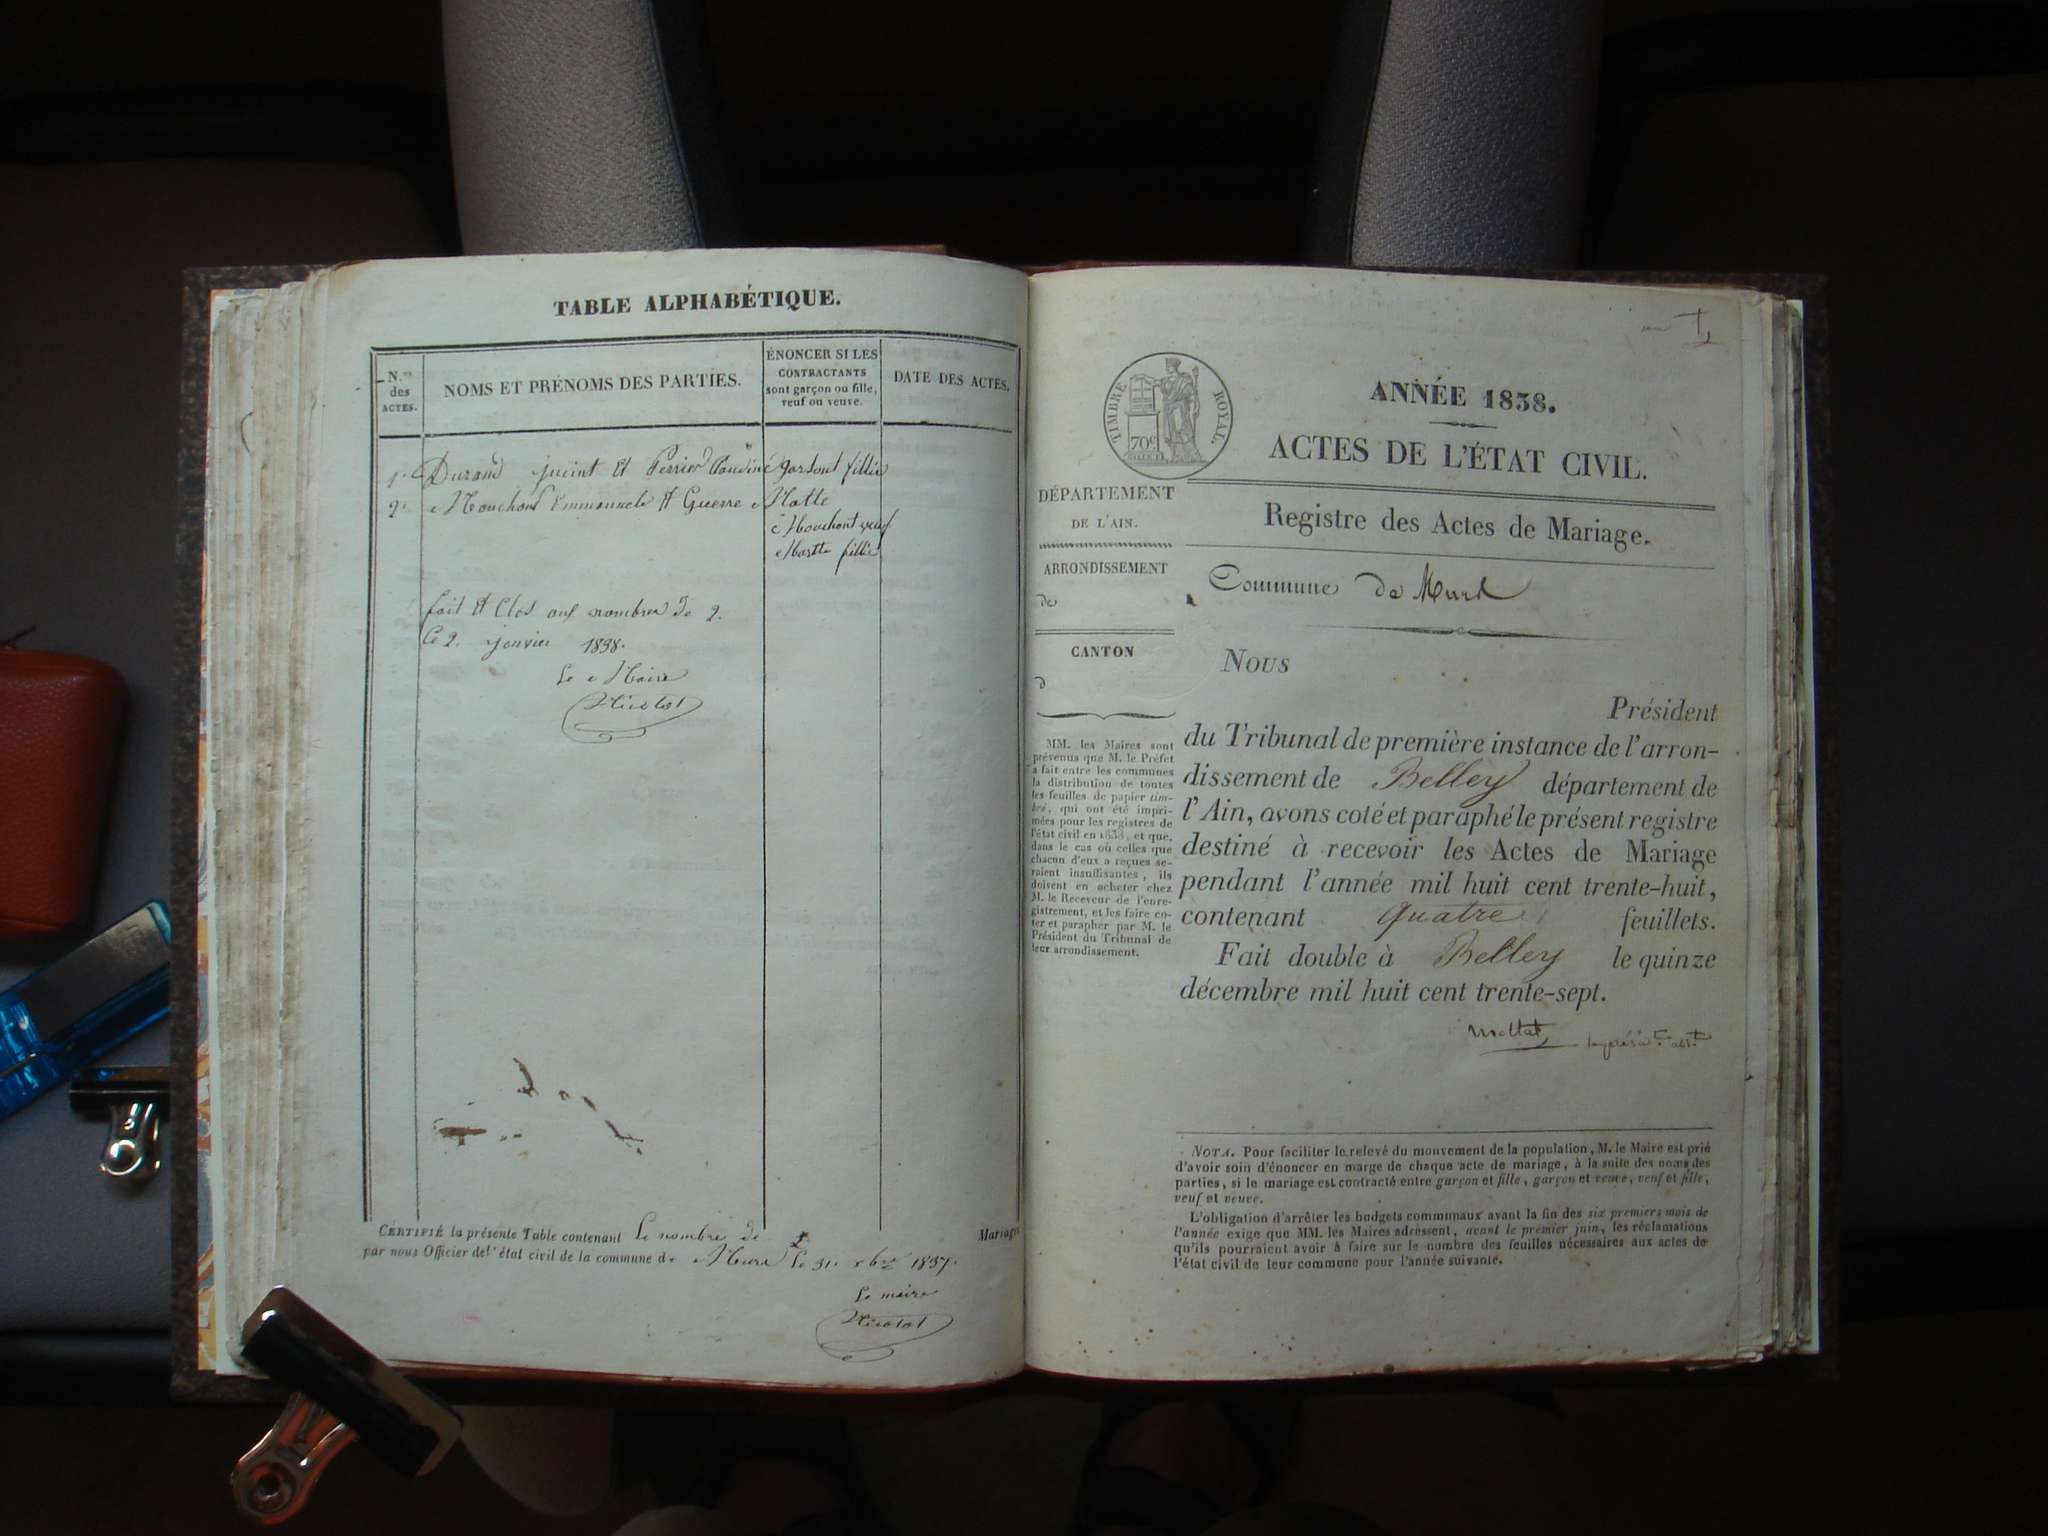 TABLE ALPHABÉTIQUE.
N.os des ACTES.
NOMS ET PRÉNOMS DES PARTIES.
ÉNONCER SI LES
CONTRACTANTS
sont garçon ou fille,
veuf ou veuve.
DATE DES ACTES.
1. Durand juint Et Perrier garsont fillie
2. Mouchont Emmanuele Et Guerre Matte
Mouchont veuf
Martte fillie
fait Et Clos aux nombres de 2.
Ce 2. janvier 1838.
Le Maire
Nicolat
CERTIFIÉ la présente Table contenant Le nombre de 2 Mariages
par nous Officier de l'état civil de la commune de Murs Le 31. xbre 1837.
Le maire
Nicolat
TIMBRE ROYAL
70c
ANNÉE 1838.
ACTES DE L'ÉTAT CIVIL.
DÉPARTEMENT
DE L'AIN.
Registre des Actes de Mariage.
ARRONDISSEMENT
de
Commune de Murs
CANTON
d
NOUS
Président
du Tribunal de première instance de l'arron-
dissement de Belley département de
l'Ain, avons coté et paraphé le présent registre
destiné à recevoir les Actes de Mariage
pendant l'année mil huit cent trente-huit,
contenant quatre feuillets.
Fait double à Belley le quinze
décembre mil huit cent trente-sept.
MM. les Maires sont
prévenus que M. le Préfet
a fait entre les communes
la distribution de toutes
les feuilles de papier tim-
bré, qui ont été impri-
mées pour les registres de
l'état civil en 1838, et que,
dans le cas où celles que
chacun d'eux a reçues se-
raient insuffisantes, ils
doivent en acheter chez
M. le Receveur de l'enre-
gistrement, et les faire co-
ter et parapher par M. le
Président du Tribunal de
leur arrondissement.
NOTA. Pour faciliter le relevé du mouvement de la population, M. le Maire est prié
d'avoir soin d'énoncer en marge de chaque acte de mariage, à la suite des noms des
parties, si le mariage est contracté entre garçon et fille, garçon et veuve, veuf et fille,
veuf et veuve.
L'obligation d'arrêter les budgets communaux avant la fin des six premiers mois de
l'année exige que MM. les Maires adressent, avant le premier juin, les réclamations
qu'ils pourraient avoir à faire sur le nombre des feuilles nécessaires aux actes de
l'état civil de leur commune pour l'année suivante.